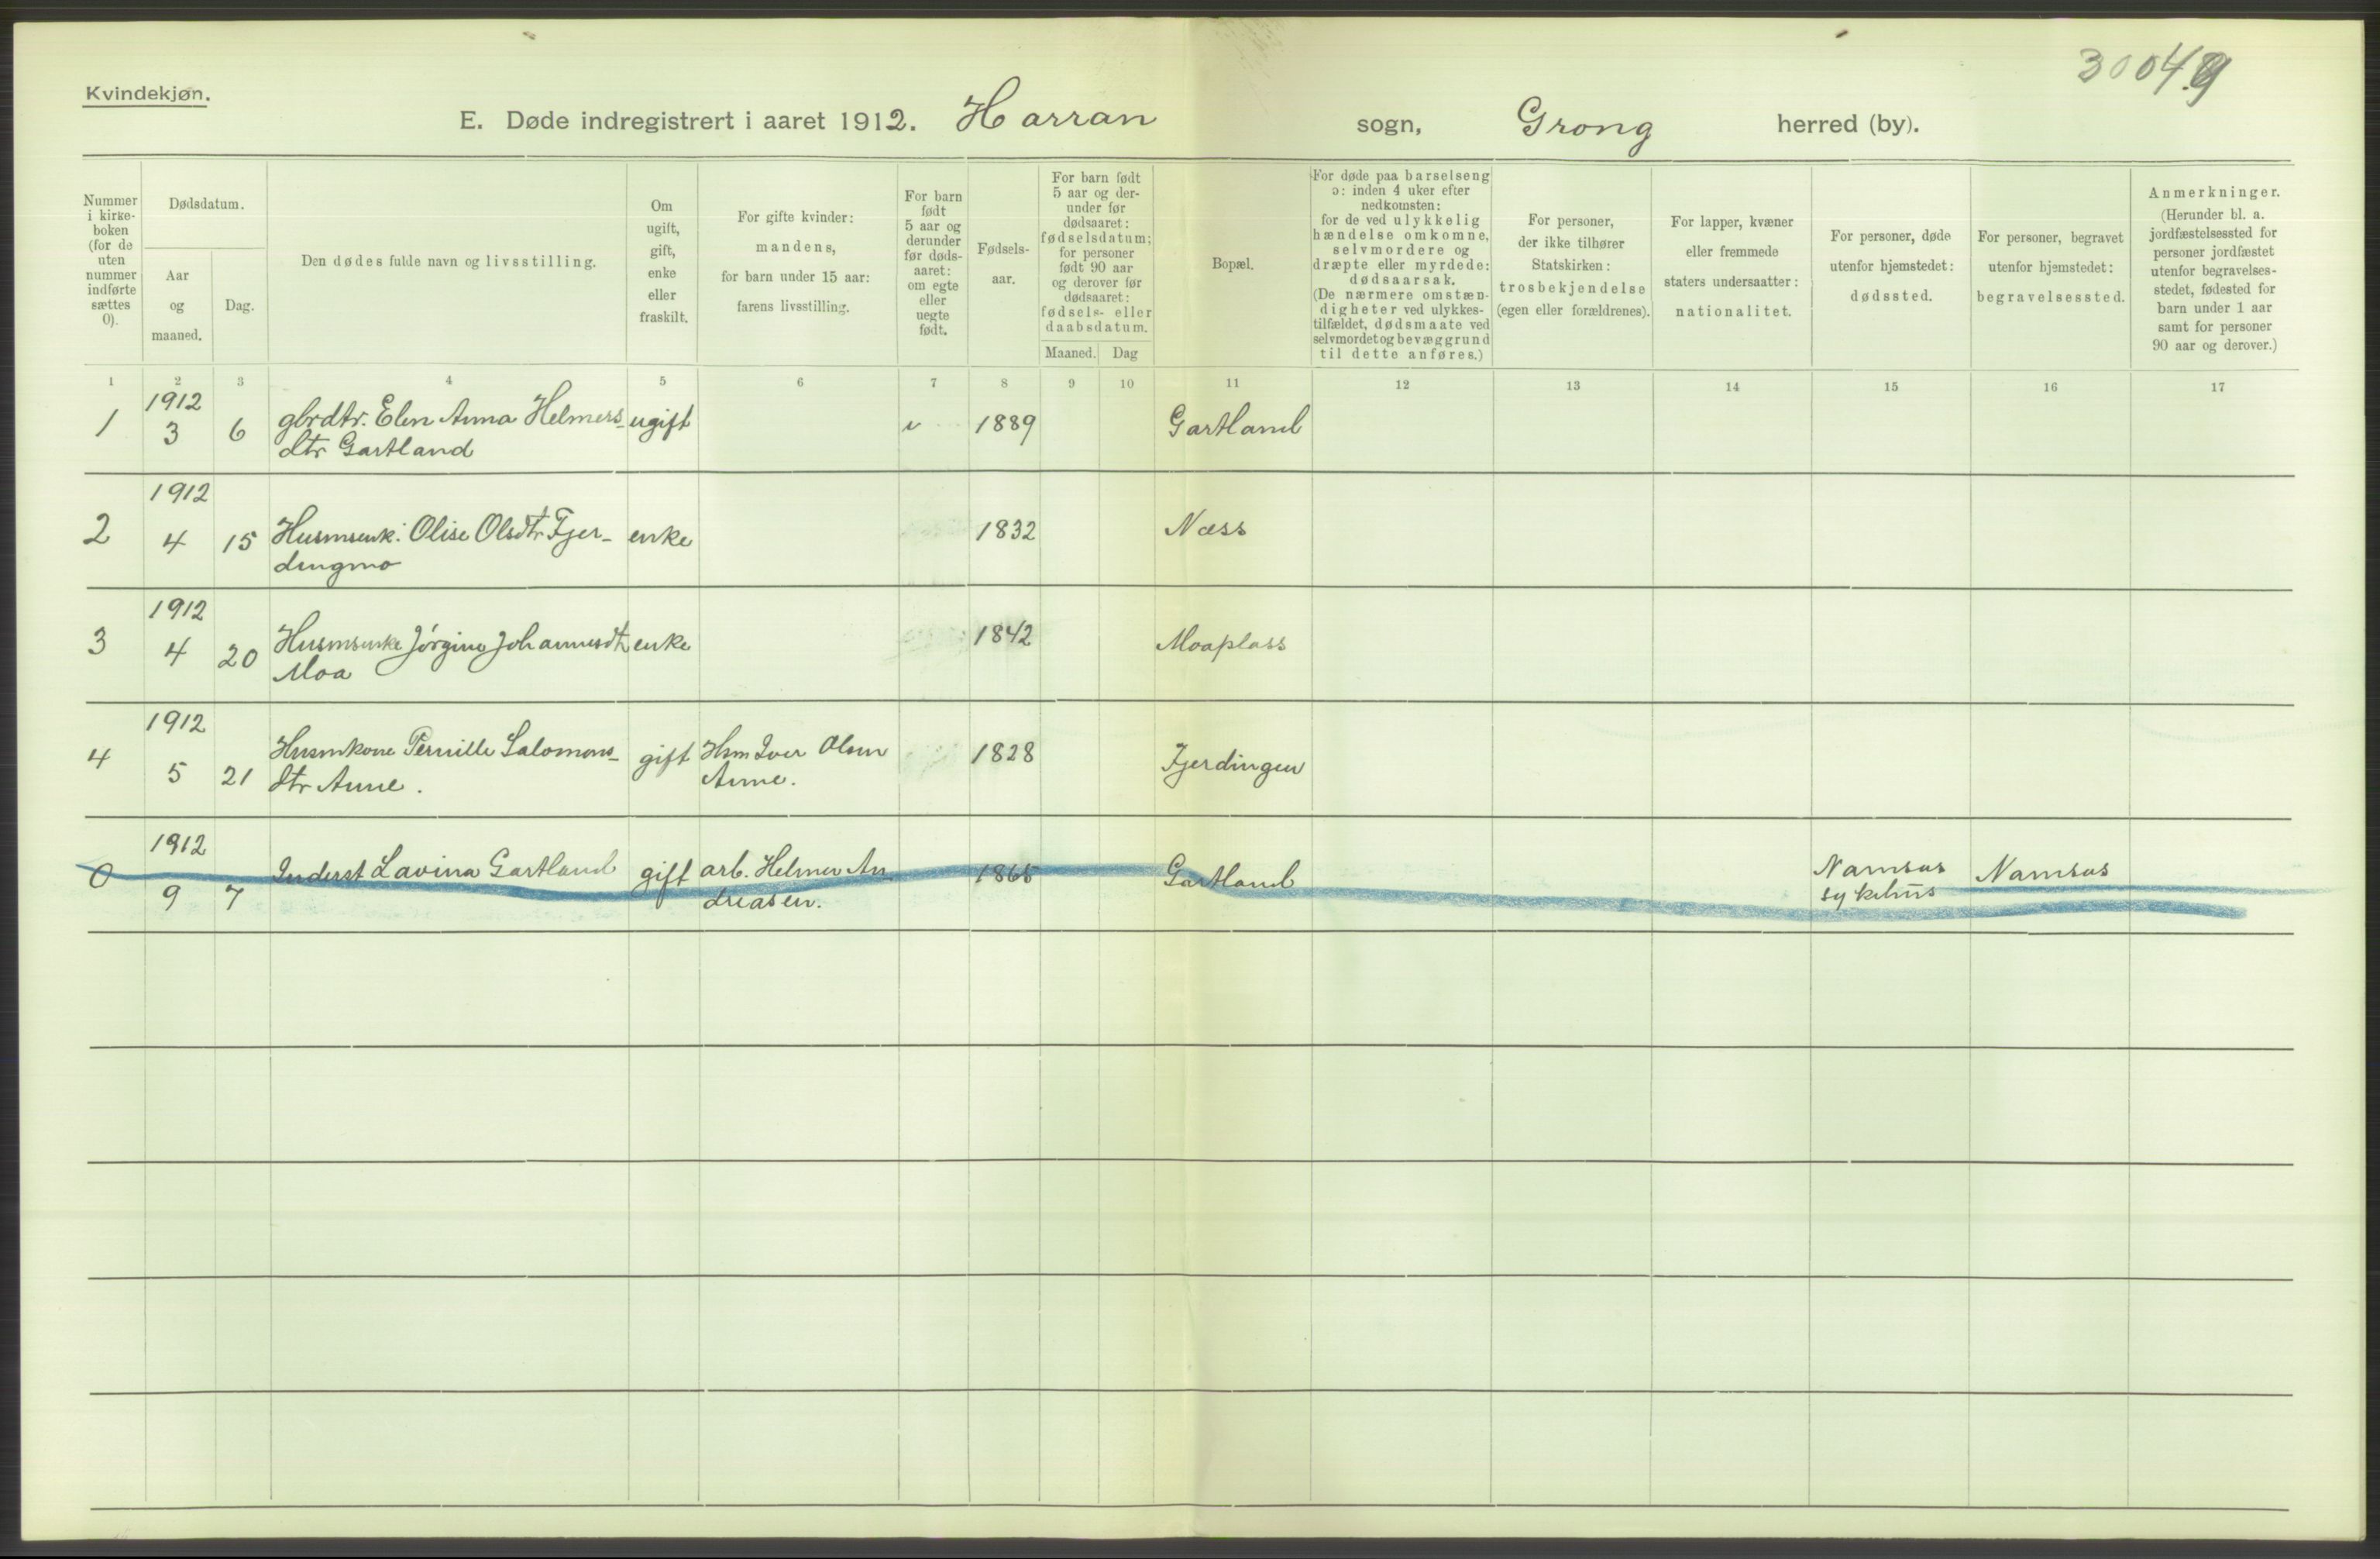 Kvindekjøn.
3004.9
E. Døde indregistrert i aaret 1912. Harran sogn, Grong herred (by).
Nummer i kirke- boken (for de uten nummer indførte sættes 0).
Dødsdatum.
Aar og maaned.
Dag.
Den dødes fulde navn og livsstilling.
Om ugift, gift, enke eller fraskilt.
For gifte kvinder: mandens, for barn under 15 aar: farens livsstilling.
For barn født 5 aar og derunder før døds- aaret: om egte eller uegte født.
Fødsels- aar.
For barn født 5 aar og der- under før dødsaaret: fødselsdatum; for personer født 90 aar og derover før dødsaaret: fødsels- eller daabsdatum.
Maaned. Dag
Bopæl.
For døde paa barselseng ɔ: inden 4 uker efter nedkomsten: for de ved ulykkelig hændelse omkomne, selvmordere og dræpte eller myrdede: dødsaarsak. (De nærmere omstæn- digheter ved ulykkes- tilfældet, dødsmaate ved selvmordet og bevæggrund til dette anføres.)
For personer, der ikke tilhører Statskirken: trosbekjendelse (egen eller forældrenes).
For lapper, kvæner eller fremmede staters undersaatter: nationalitet.
For personer, døde utenfor hjemstedet: dødssted.
For personer, begravet utenfor hjemstedet: begravelsessted.
Anmerkninger. (Herunder bl. a. jordfæstelsessted for personer jordfæstet utenfor begravelses- stedet, fødested for barn under 1 aar samt for personer 90 aar og derover.)
1 2 3 4 5 6 7 8 9 10 11 12 13 14 15 16 17
1912
1 3 6 gbrdtr. Elen Anna Helmers- ugift 1889 Gartland
dtr Gartland
1912
2 4 15 Husmsenk. Olise Olsdtr Fjer- enke 1832 Næss
dingmo
1912
3 4 20 Husmsenke Jørgine Johannesdt enke 1842 Moaplass
Moa
1912
4 5 21 Husmkone Pernille Salomons- gift Hsm Iver Olsen 1828 Fjerdingen
dtr Aune. Aune.
1912
0 9 7 Inderst Lavina Gartland gift arb. Helmer An- 1865 Gartland Namsos Namsos
dreasen. sykehus